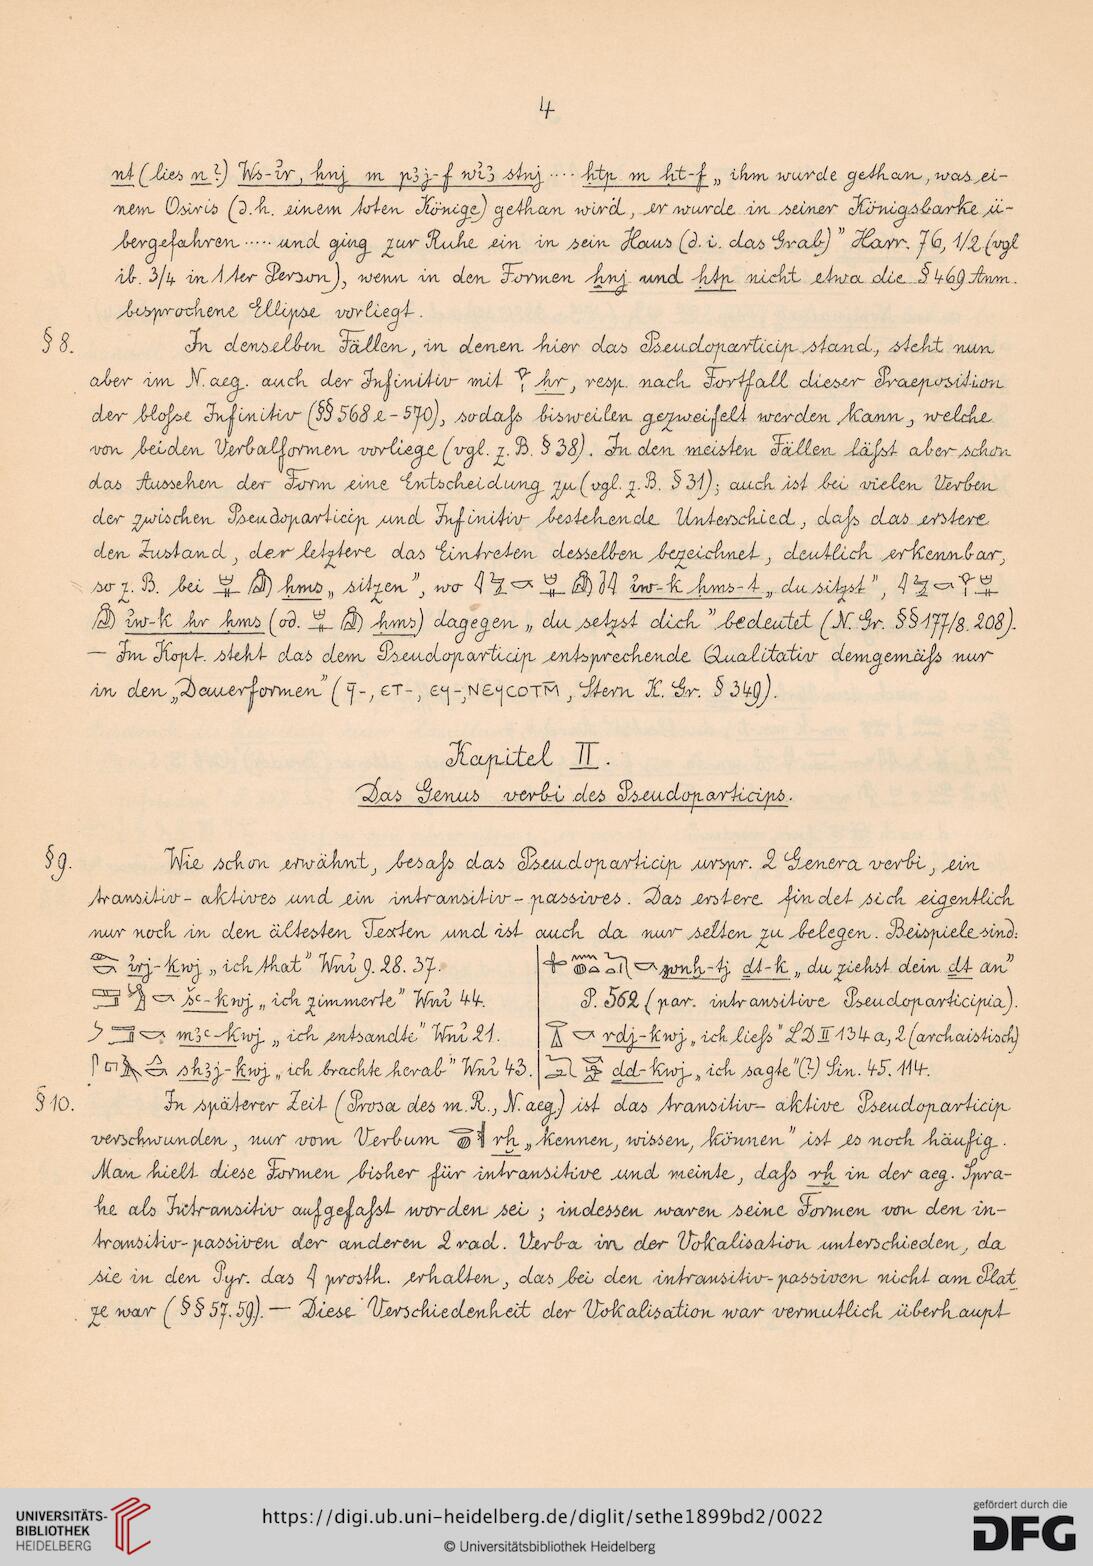 4
nt (lies n?) Ws-ỉr, ẖnj m pꜣj-f wỉꜣ stnj ···· ḥtp m ḥt-f „ihm wurde gethan, was ei-
nem Osiris (d.h. einem toten Könige) gethan wird, er wurde in seiner Königsbarke ü-
bergefahren ····· und ging zur Ruhe ein in sein Haus (d. i. das Grab)” Harr. 76, 1/2 (vgl
ib. 3/4 in 1ter Person), wenn in den Formen ẖnj und ḥtp nicht etwa die § 469 Anm.
besprochene Ellipse vorliegt.
§ 8. In denselben Fällen, in denen hier das Pseudoparticip stand, steht nun
aber im N. aeg. auch der Infinitiv mit ḥr, resp. nach Fortfall dieser Praeposition
der bloſse Infinitiv (§§ 568 e - 570), sodaſs bisweilen gezweifelt werden kann, welche
von beiden Verbalformen vorliege (vgl. z. B. § 38). In den meisten Fällen läſst aber schon
das Aussehen der Form eine Entscheidung zu (vgl. z. B. § 31); auch ist bei vielen Verben
der zwischen Pseudoparticip und Infinitiv bestehende Unterschied, daſs das erstere
den Zustand, der letztere das Eintreten desselben bezeichnet, deutlich erkennbar,
so z. B. bei ḥms „sitzen”, wo ỉw-k ḥms-t „du sitzst”,
ỉw-k ḥr ḥms (od. ḥms) dagegen „du setzst dich” bedeutet (N. Gr. §§ 177/8. 208).
— Im Kopt. steht das dem Pseudoparticip entsprechende Qualitativ demgemäſs nur
in den „Dauerformen” (ϥ̄-, ⲉⲧ-, ⲉϥ-, ⲛⲉϥⲥⲟⲧⲙ̄, Stern K. Gr. § 349).
Kapitel II.
Das Genus verbi des Pseudoparticips.
§ 9. Wie schon erwähnt, besaſs das Pseudoparticip urspr. 2 Genera verbi, ein
transitiv-aktives und ein intransitiv-passives. Das erstere findet sich eigentlich
nur noch in den ältesten Texten und ist auch da nur selten zu belegen. Beispiele sind:
ỉrj-kwj „ich that” Wnỉ 9. 28. 37.
šꜥ-kwj „ich zimmerte” Wnỉ 44.
mꜣꜥ-kwj „ich entsandte” Wnỉ 21.
shꜣj-kwj „ich brachte herab” Wnỉ 43.
wnḫ-tj dt-k „du ziehst dein dt an”
P. 562 (par. intransitive Pseudoparticipia).
rdj-kwj „ich lieſs” LD II 134 a, 2 (archaistisch)
dd-kwj „ich sagte” (?) Sin. 45. 114.
§ 10. In späterer Zeit (Prosa des m. R., N. aeg.) ist das transitiv-aktive Pseudoparticip
verschwunden, nur vom Verbum rḫ „kennen, wissen, können” ist es noch häufig.
Man hielt diese Formen bisher für intransitive und meinte, daſs rḫ in der aeg. Spra-
he als Intransitiv aufgefaſst worden sei; indessen waren seine Formen von den in-
transitiv-passiven der anderen 2rad. Verba in der Vokalisation unterschieden, da
sie in den Pyr. das prosth. erhalten, das bei den intransitiv-passiven nicht am Plat
ze war (§§ 57. 59). — Diese Verschiedenheit der Vokalisation war vermutlich überhaupt
UNIVERSITÄTS-
BIBLIOTHEK
HEIDELBERG
https://digi.ub.uni-heidelberg.de/diglit/sethe1899bd2/0022
© Universitätsbibliothek Heidelberg
gefördert durch die
DFG